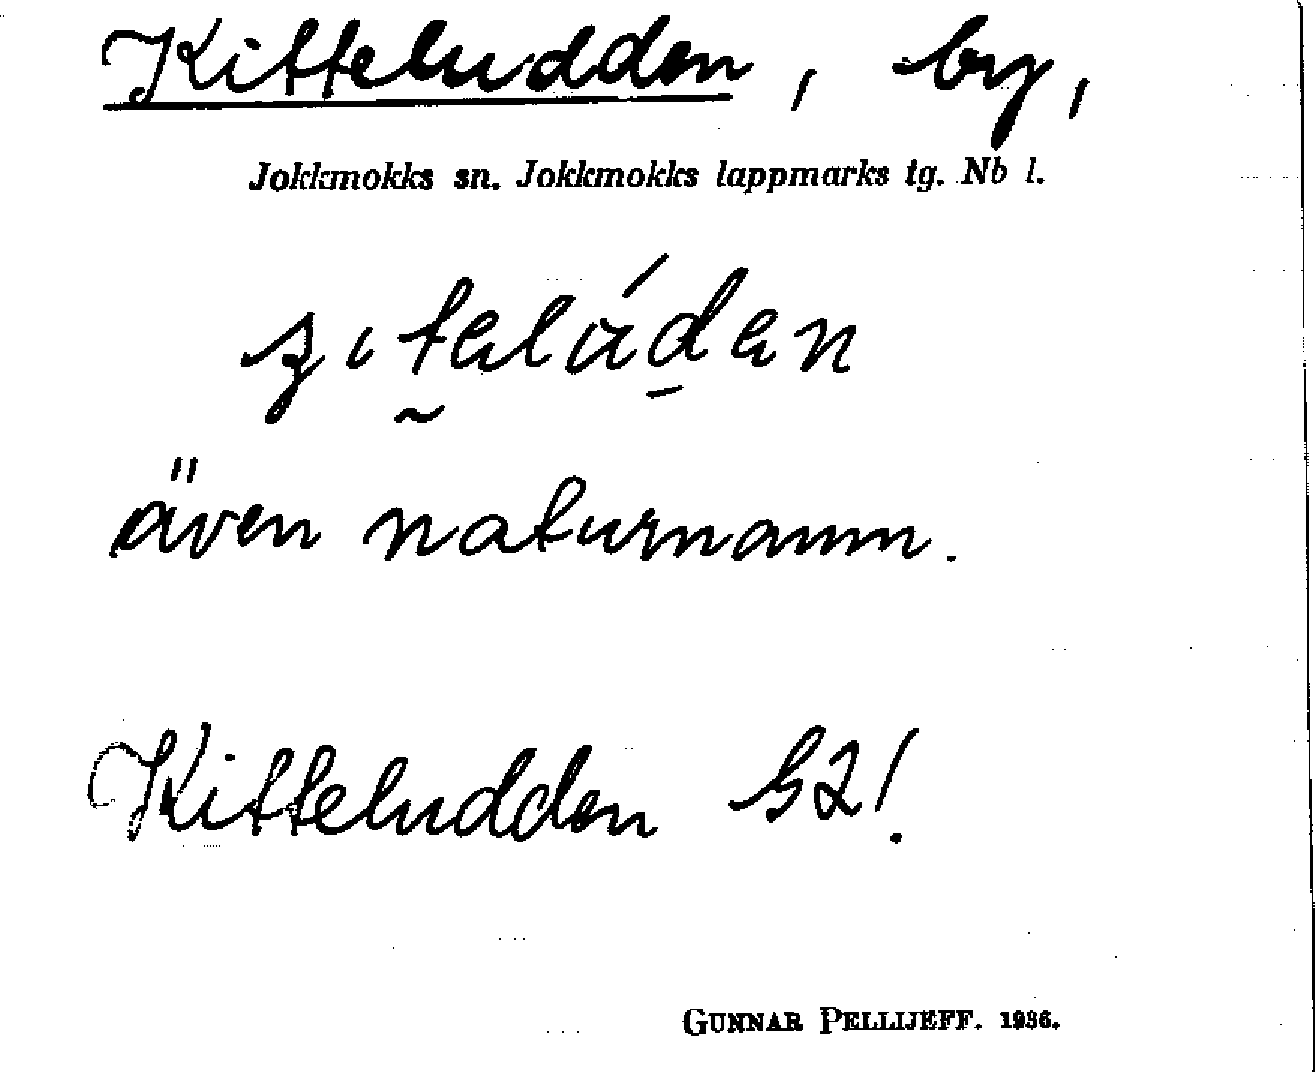 Kitteludden, by,
Jokkmokks sn. Jokkmokks lappmarks tg. Nb l.
även naturnamn.
Kitteludden
GUNNAR PELLIJEFF. 1936.